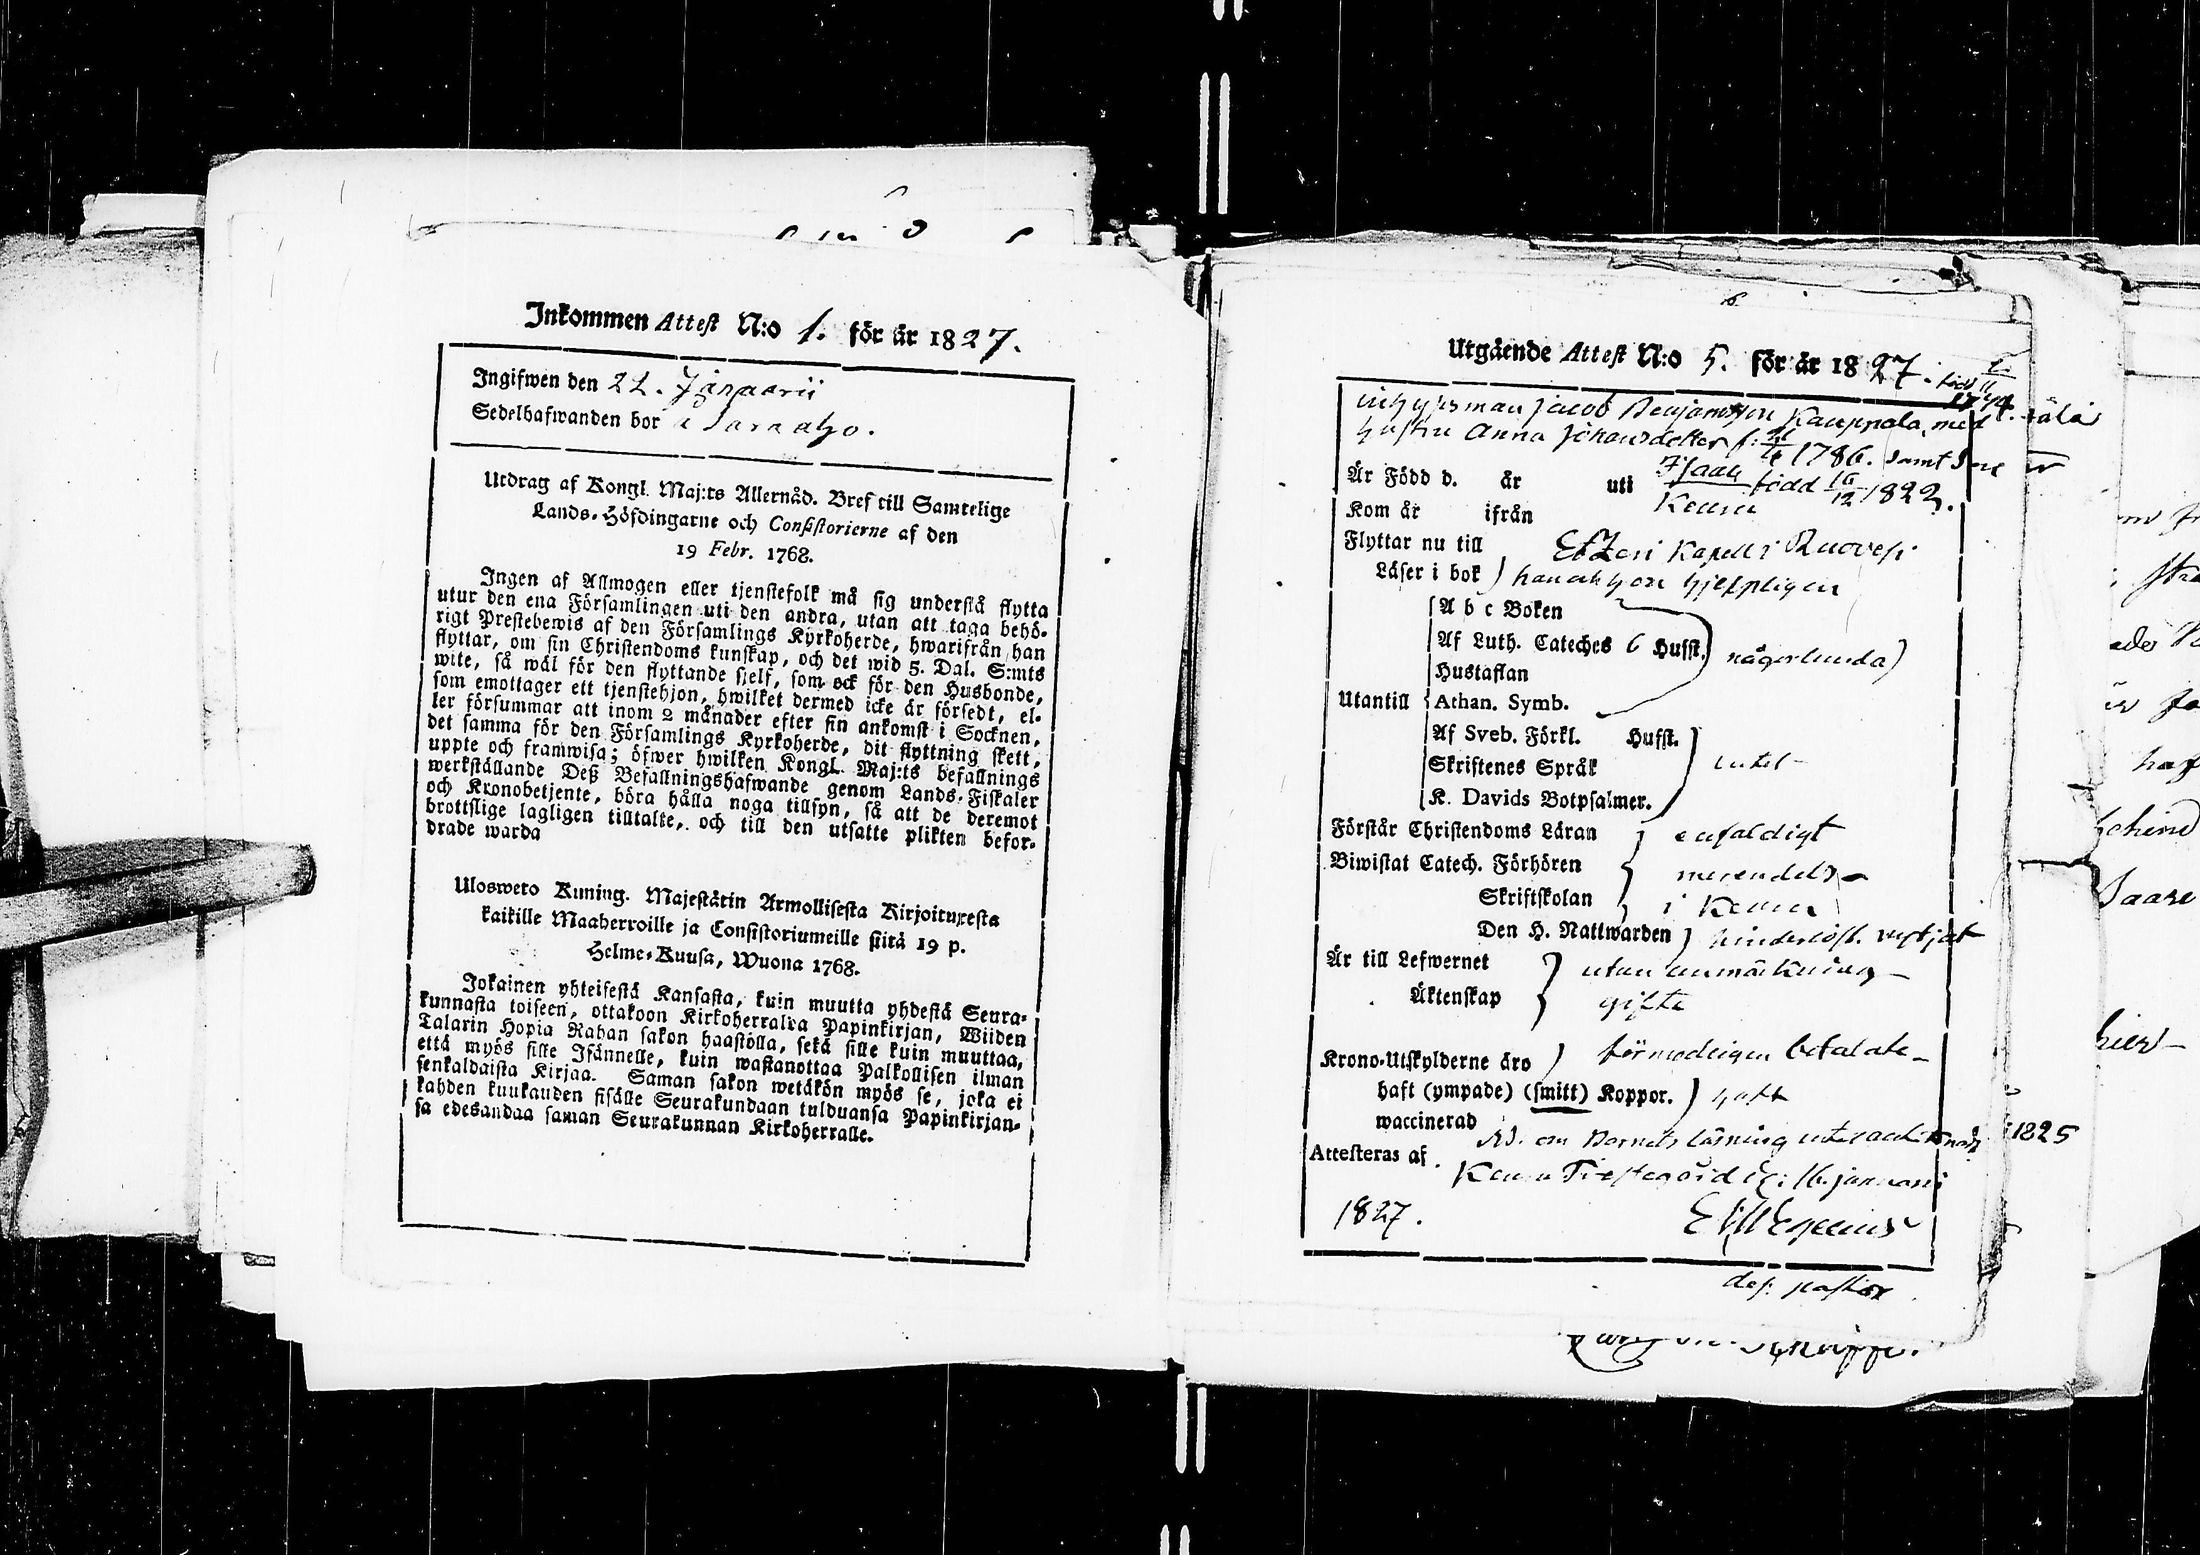 Inkommen Attest N:o 1. för år 1827.
Ingifwen den 22. Januarii
Sedelhafwanden bor i Saraaho.
Utdrag af Kongl. Maj:ts Allernåd. Bref till Samtelige
Lands-Höfdingarne och Consistorierne af den
19 Febr. 1768.
Ingen af Allmogen eller tjenstefolk må sig understå flytta
utur den ena Församlingen uti den andra, utan att taga behö-
rigt Prestebewis af den Församlings Kyrkoherde, hwarifrån han
flyttar, om sin Christendoms kunskap, och det wid 5. Dal. S:mts
wite, så wäl för den flyttande sjelf, som ock för den Husbonde,
som emottager ett tjenstehjon, hwilket dermed icke är försedt, el-
ler försummar att inom 2 månader efter sin ankomst i Socknen,
det samma för den Församlings Kyrkoherde, dit flyttning skett,
uppte och framwisa; öfwer hwilken Kongl. Maj:ts befallnings
werkställande Deß Befallningshafwande genom Lands-Fiskaler
och Kronobetjente, böra hålla noga tillsyn, så att de deremot
brottslige lagligen tilltalte, och till den utsatte plikten befor-
drade warda
Ulosweto Kuning. Majestätin Armollisesta Kirjoituxesta
kaikille Maaherroille ja Consistoriumeille siitä 19 p.
Helme-Kuusa, Wuona 1768.
Jokainen yhteisestä Kansasta, kuin muutta yhdestä Seura-
kunnasta toiseen, ottakoon Kirkoherralda Papinkirjan, Wiiden
Talarin Hopia Rahan sakon haastölla, sekä sille kuin muuttaa,
että myös sille Isännelle, kuin wastanottaa Palkollisen ilman
senkaldaista Kirjaa. Saman sakon wetäkön myös se, joka ei
kahden kuukauden sisälle Seurakundaan tulduansa Papinkirjan-
sa edesandaa saman Seurakunnan Kirkoherralle.
Utgående Attest N:o 5. för år 1827. född
Jacob Benjamsson Kauppala, med
hustru Anna Johansdotter f. 1786. samt
Är Född d. år uti Isaak född 16/12 1822.
Kom år ifrån Keuru
Flyttar nu till Etzeri Kapell i Ruovesi
Läser i bok han och hon hjelpligen
A b c Boken
Af Luth. Cateches 6 Hufst. någorlunda
Hustaflan
Utantill Athan. Symb.
Af Sveb. Förkl. Hufst.
Skriftenes Språk intet
K. Davids Botpsalmer.
Förstår Christendoms Läran enfaldigt
Biwistat Catech. Förhören merendels
Skriftskolan i Keuru
Den H. Nattwarden hinderlöst
Är till Lefwernet utan anmärkning
Äktenskap gifte
Krono-Utskylderne äro förmodeligen betalate
haft (ympade) (smitt) Koppor. haft
waccinerad
N.B. om Barnets läsning 1825
Attesteras af Keuru Prestegård d. 16. januarii
1827.
def. pastor